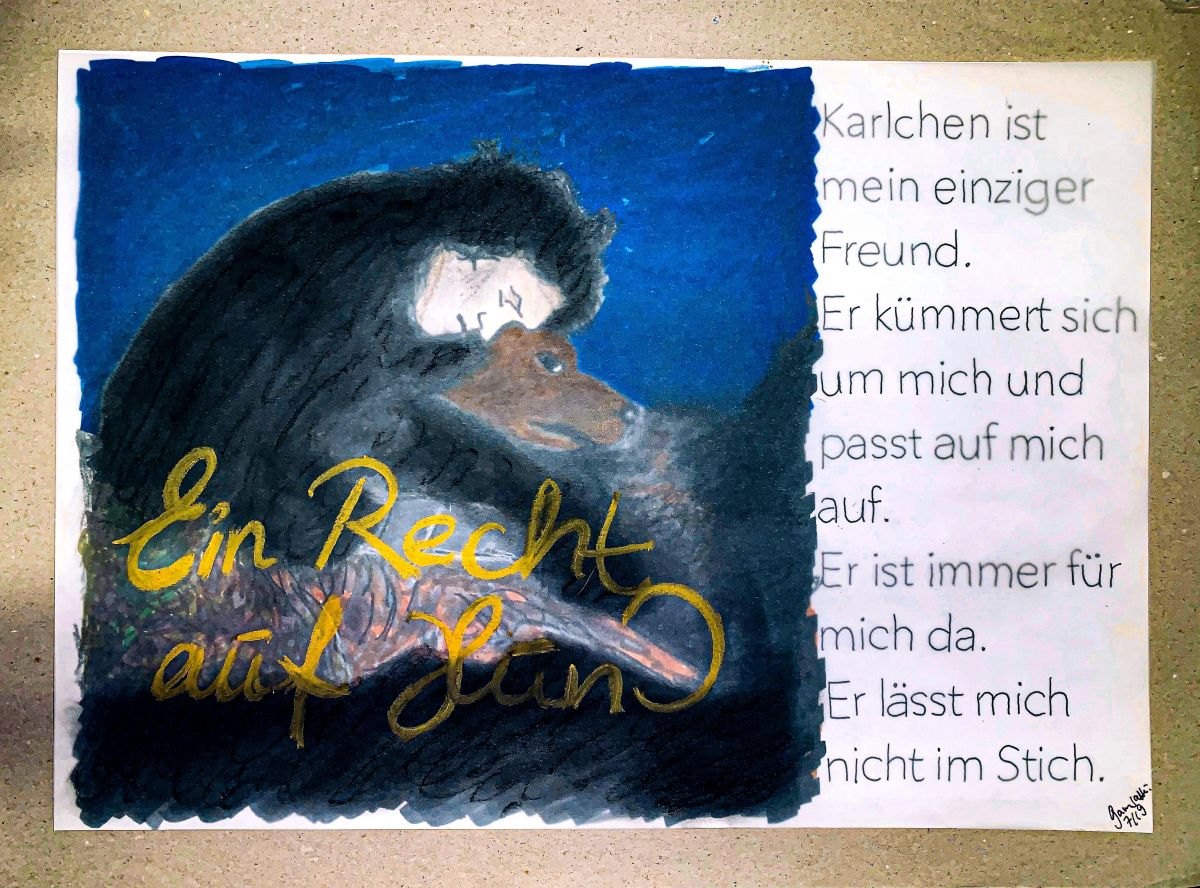 Ein Recht
auf Hund
Karlchen ist
mein einziger
Freund.
Er kümmert sich
um mich und
passt auf mich
auf.
Er ist immer für
mich da.
Er lässt mich
nicht im Stich.
7/19